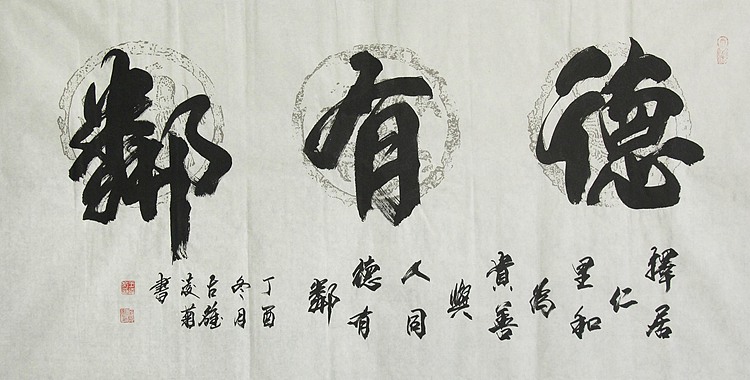 德有鄰
擇居
仁
里和
為
貴善
與
人同
德有
鄰
丁酉
冬月
凌菊
書